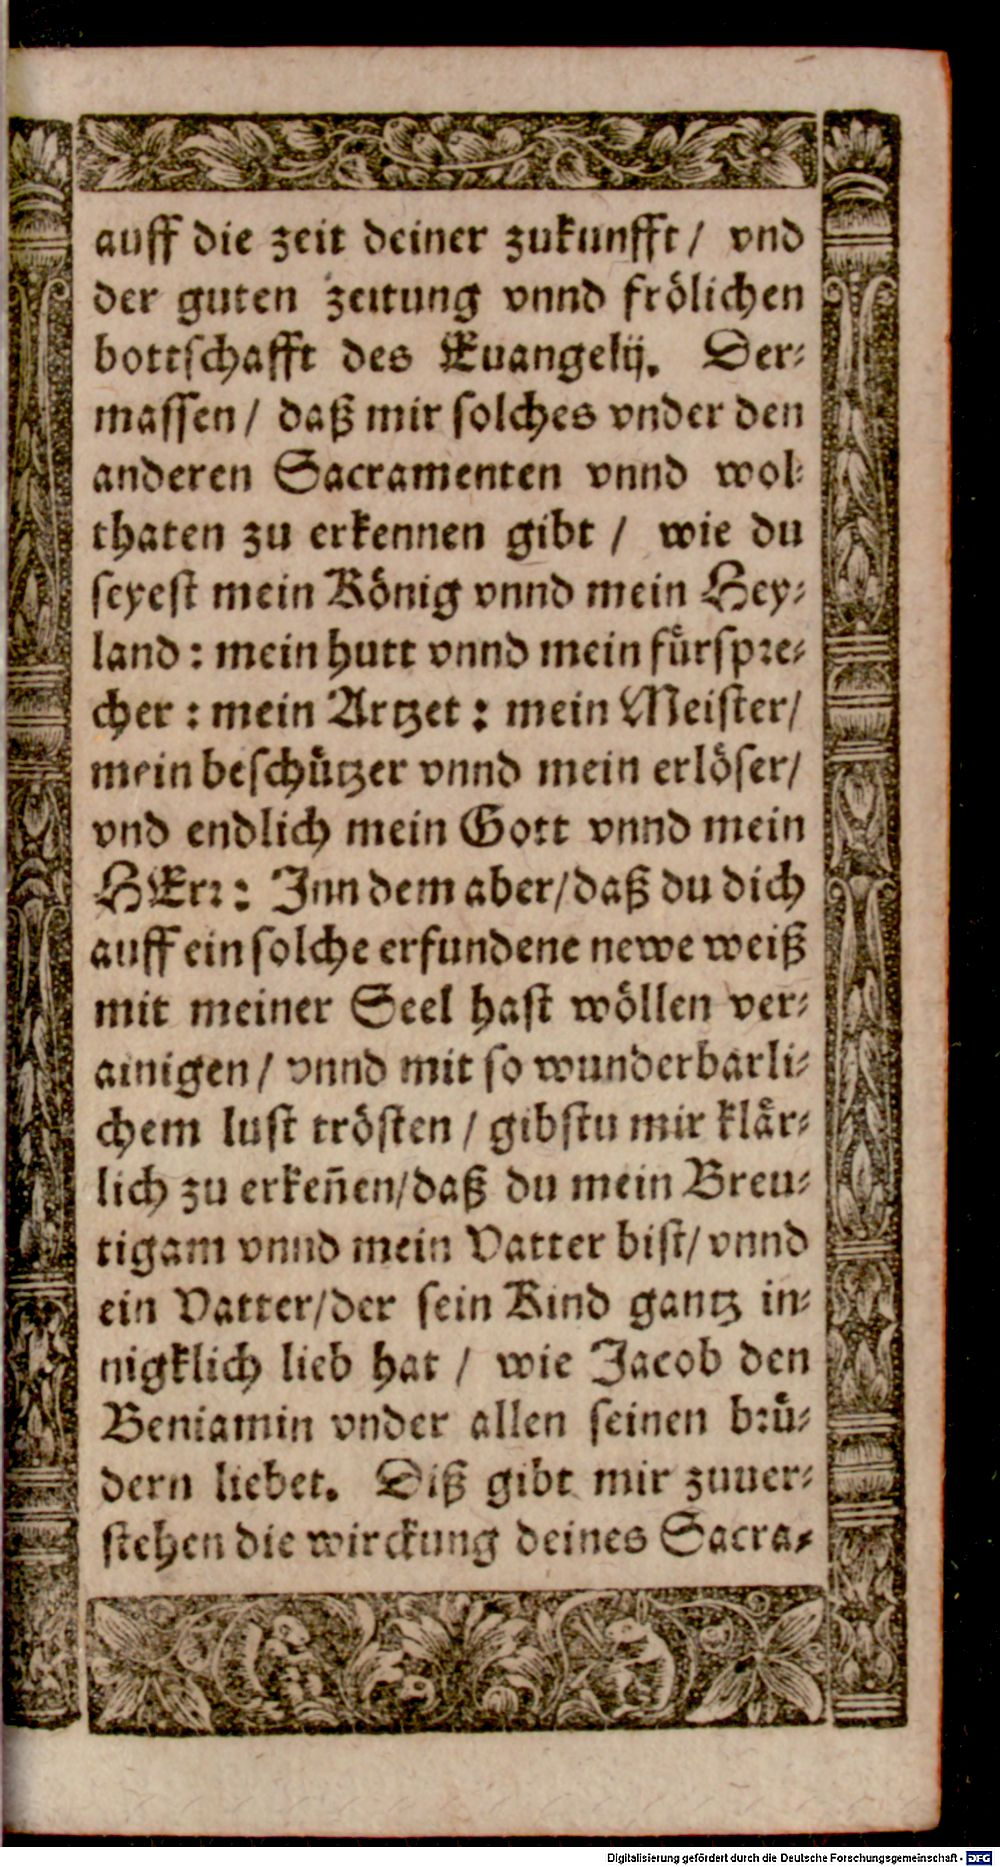 auff die zeit deiner zukunfft / vnd
der guten zeitung vnnd frölichen
bottschafft des Euangelij. Der-
massen / daß mir solches vnder den
anderen Sacramenten vnnd wol-
thaten zu erkennen gibt / wie du
seyest mein König vnnd mein Hey-
land : mein hutt vnnd mein fürspre-
cher : mein Artzet : mein Meister /
mein beschützer vnnd mein erlöser /
vnd endlich mein Gott vnnd mein
HErr : Inn dem aber / daß du dich
auff ein solche erfundene newe weiß
mit meiner Seel hast wöllen ver-
ainigen / vnnd mit so wunderbarli-
chem lust trösten / gibstu mir klår-
lich zu erkeñen / daß du mein Breu-
tigam vnnd mein Vatter bist / vnnd
ein Vatter / der sein Kind gantz in-
nigklich lieb hat / wie Jacob den
Beniamin vnder allen seinen brü-
dern liebet. Diß gibt mir zuuer-
stehen die wirckung deines Sacra-
Digitalisierung gefördert durch die Deutsche Forschungsgemeinschaft - DFG